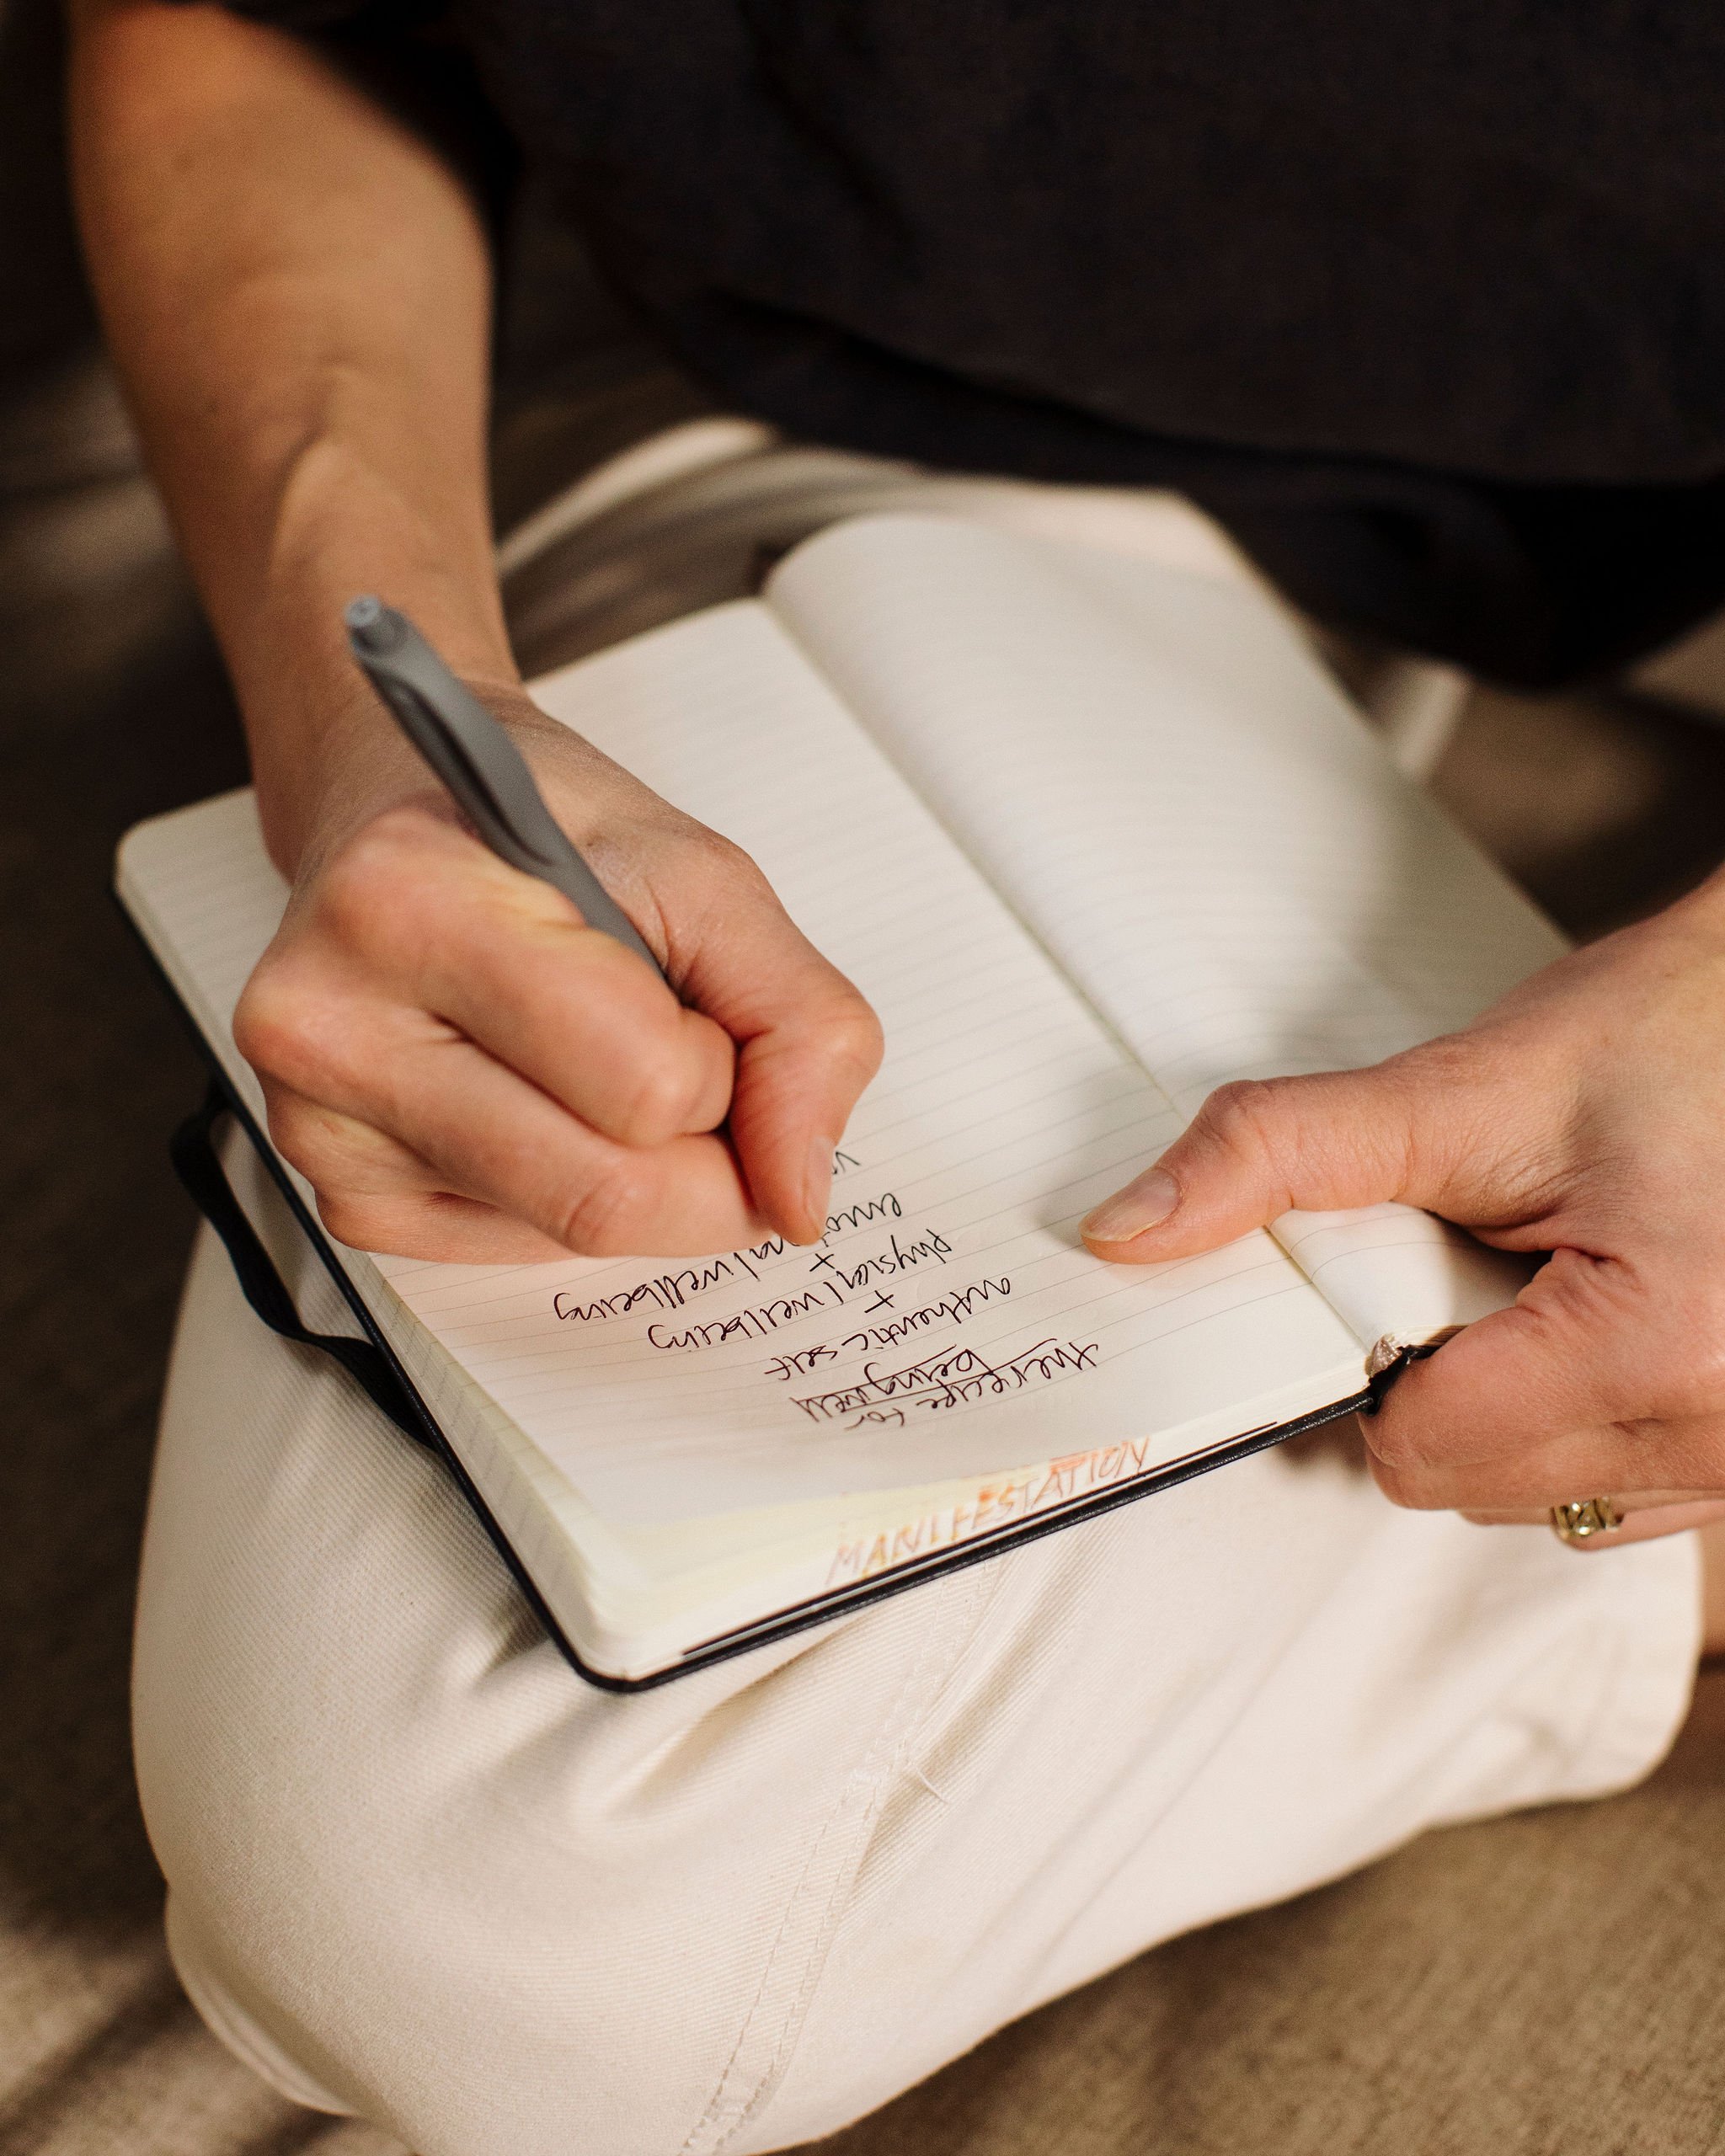 MANIFESTATION
the recipe for
being well
authentic self
+
physical wellbeing
+
emotional wellbeing